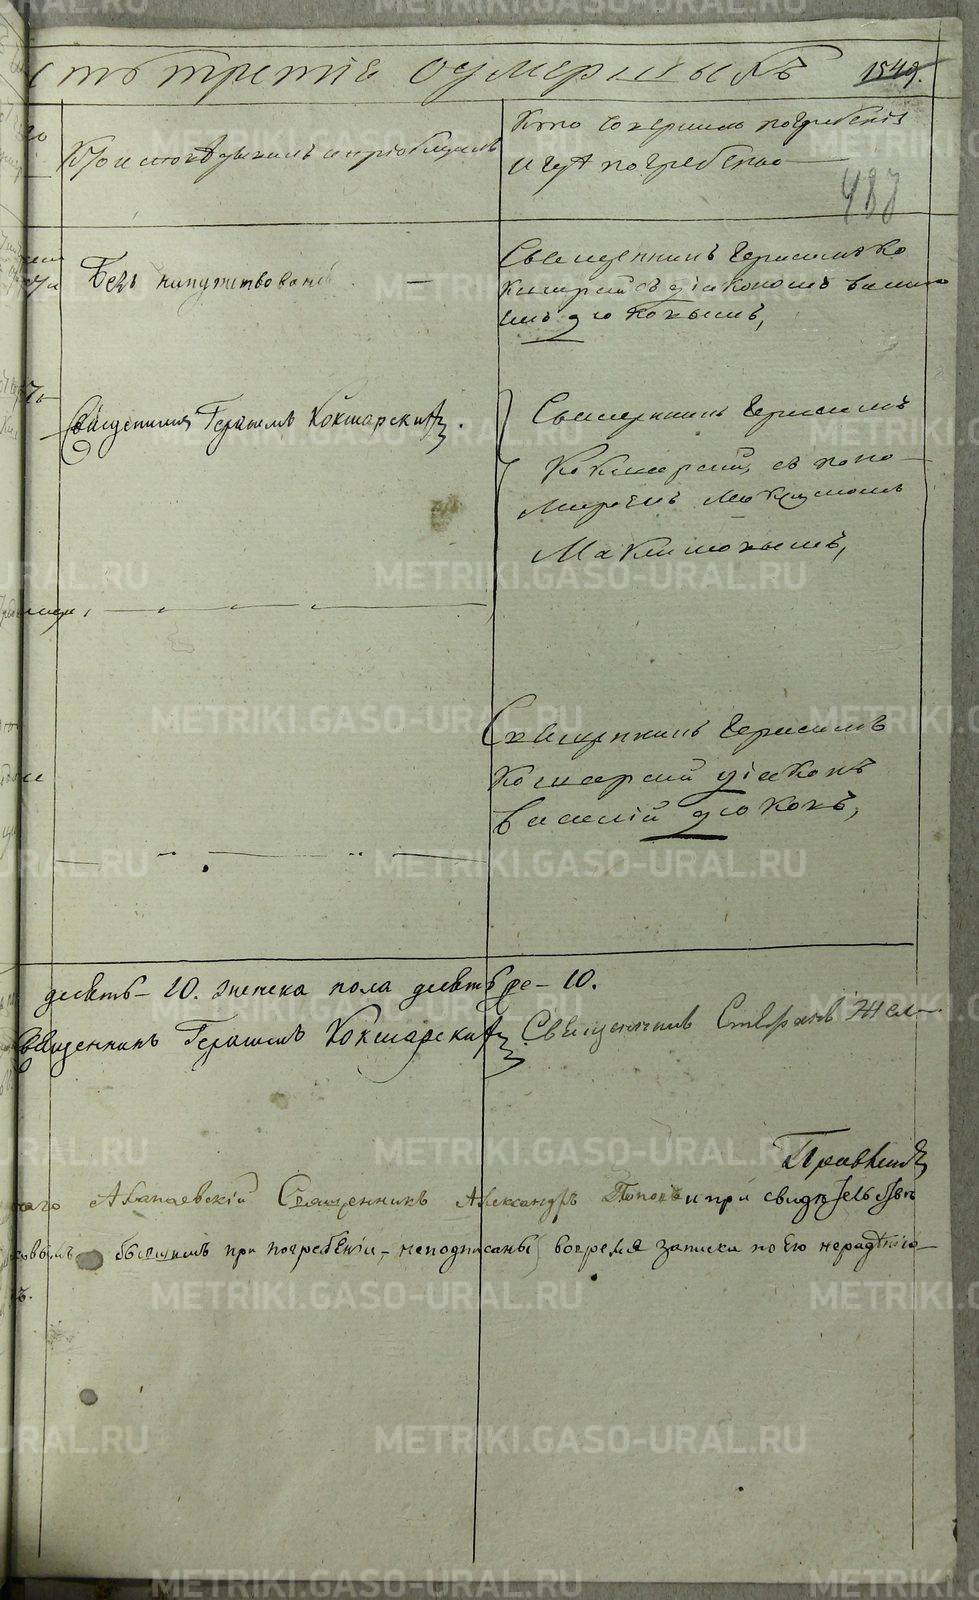 сть третія о умершыхъ 1549.
Кто исповѣдывалъ и пріобщалъ
Кто совершилъ погребеніе
и гдѣ погребены
487
Безъ напутствованія
Священникъ Герасимъ Ко
кшарскій съ діакономъ Васили
емъ Дюковымъ,
Священникъ Герасимъ Кокшарскій.
Священникъ Герасимъ
Кокшарскій, съ поно
маремъ
Максимовымъ,
Священникъ Герасимъ
Кокшарскій діаконъ
Василій Дюковъ,
десять – 10. женска пола десять же – 10.
Священникъ Герасимъ Кокшарскій
Священникъ Стефанъ
Алапаевскій Священникъ Александръ Поповъ и при свидѣтельствѣ
бывшимъ при погребеніи, – неподписаны во время записки по его нерадѣнію
METRIKI.GASO-URAL.RU